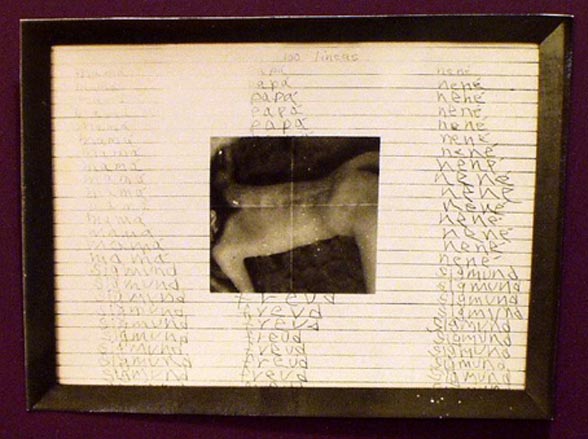 100 líneas
mamá papá nené
mamá papá nené
papá nené
mamá papá nené
mamá papá nené
mamá nené
mamá nené
mamá nené
mamá nené
mamá nené
mamá nené
mamá nené
mamá nené
mamá nené
mamá nené
sigmund sigmund
sigmund sigmund
sigmund freud sigmund
sigmund freud sigmund
sigmund freud sigmund
sigmund freud sigmund
sigmund freud sigmund
sigmund freud sigmund
sigmund freud sigmund